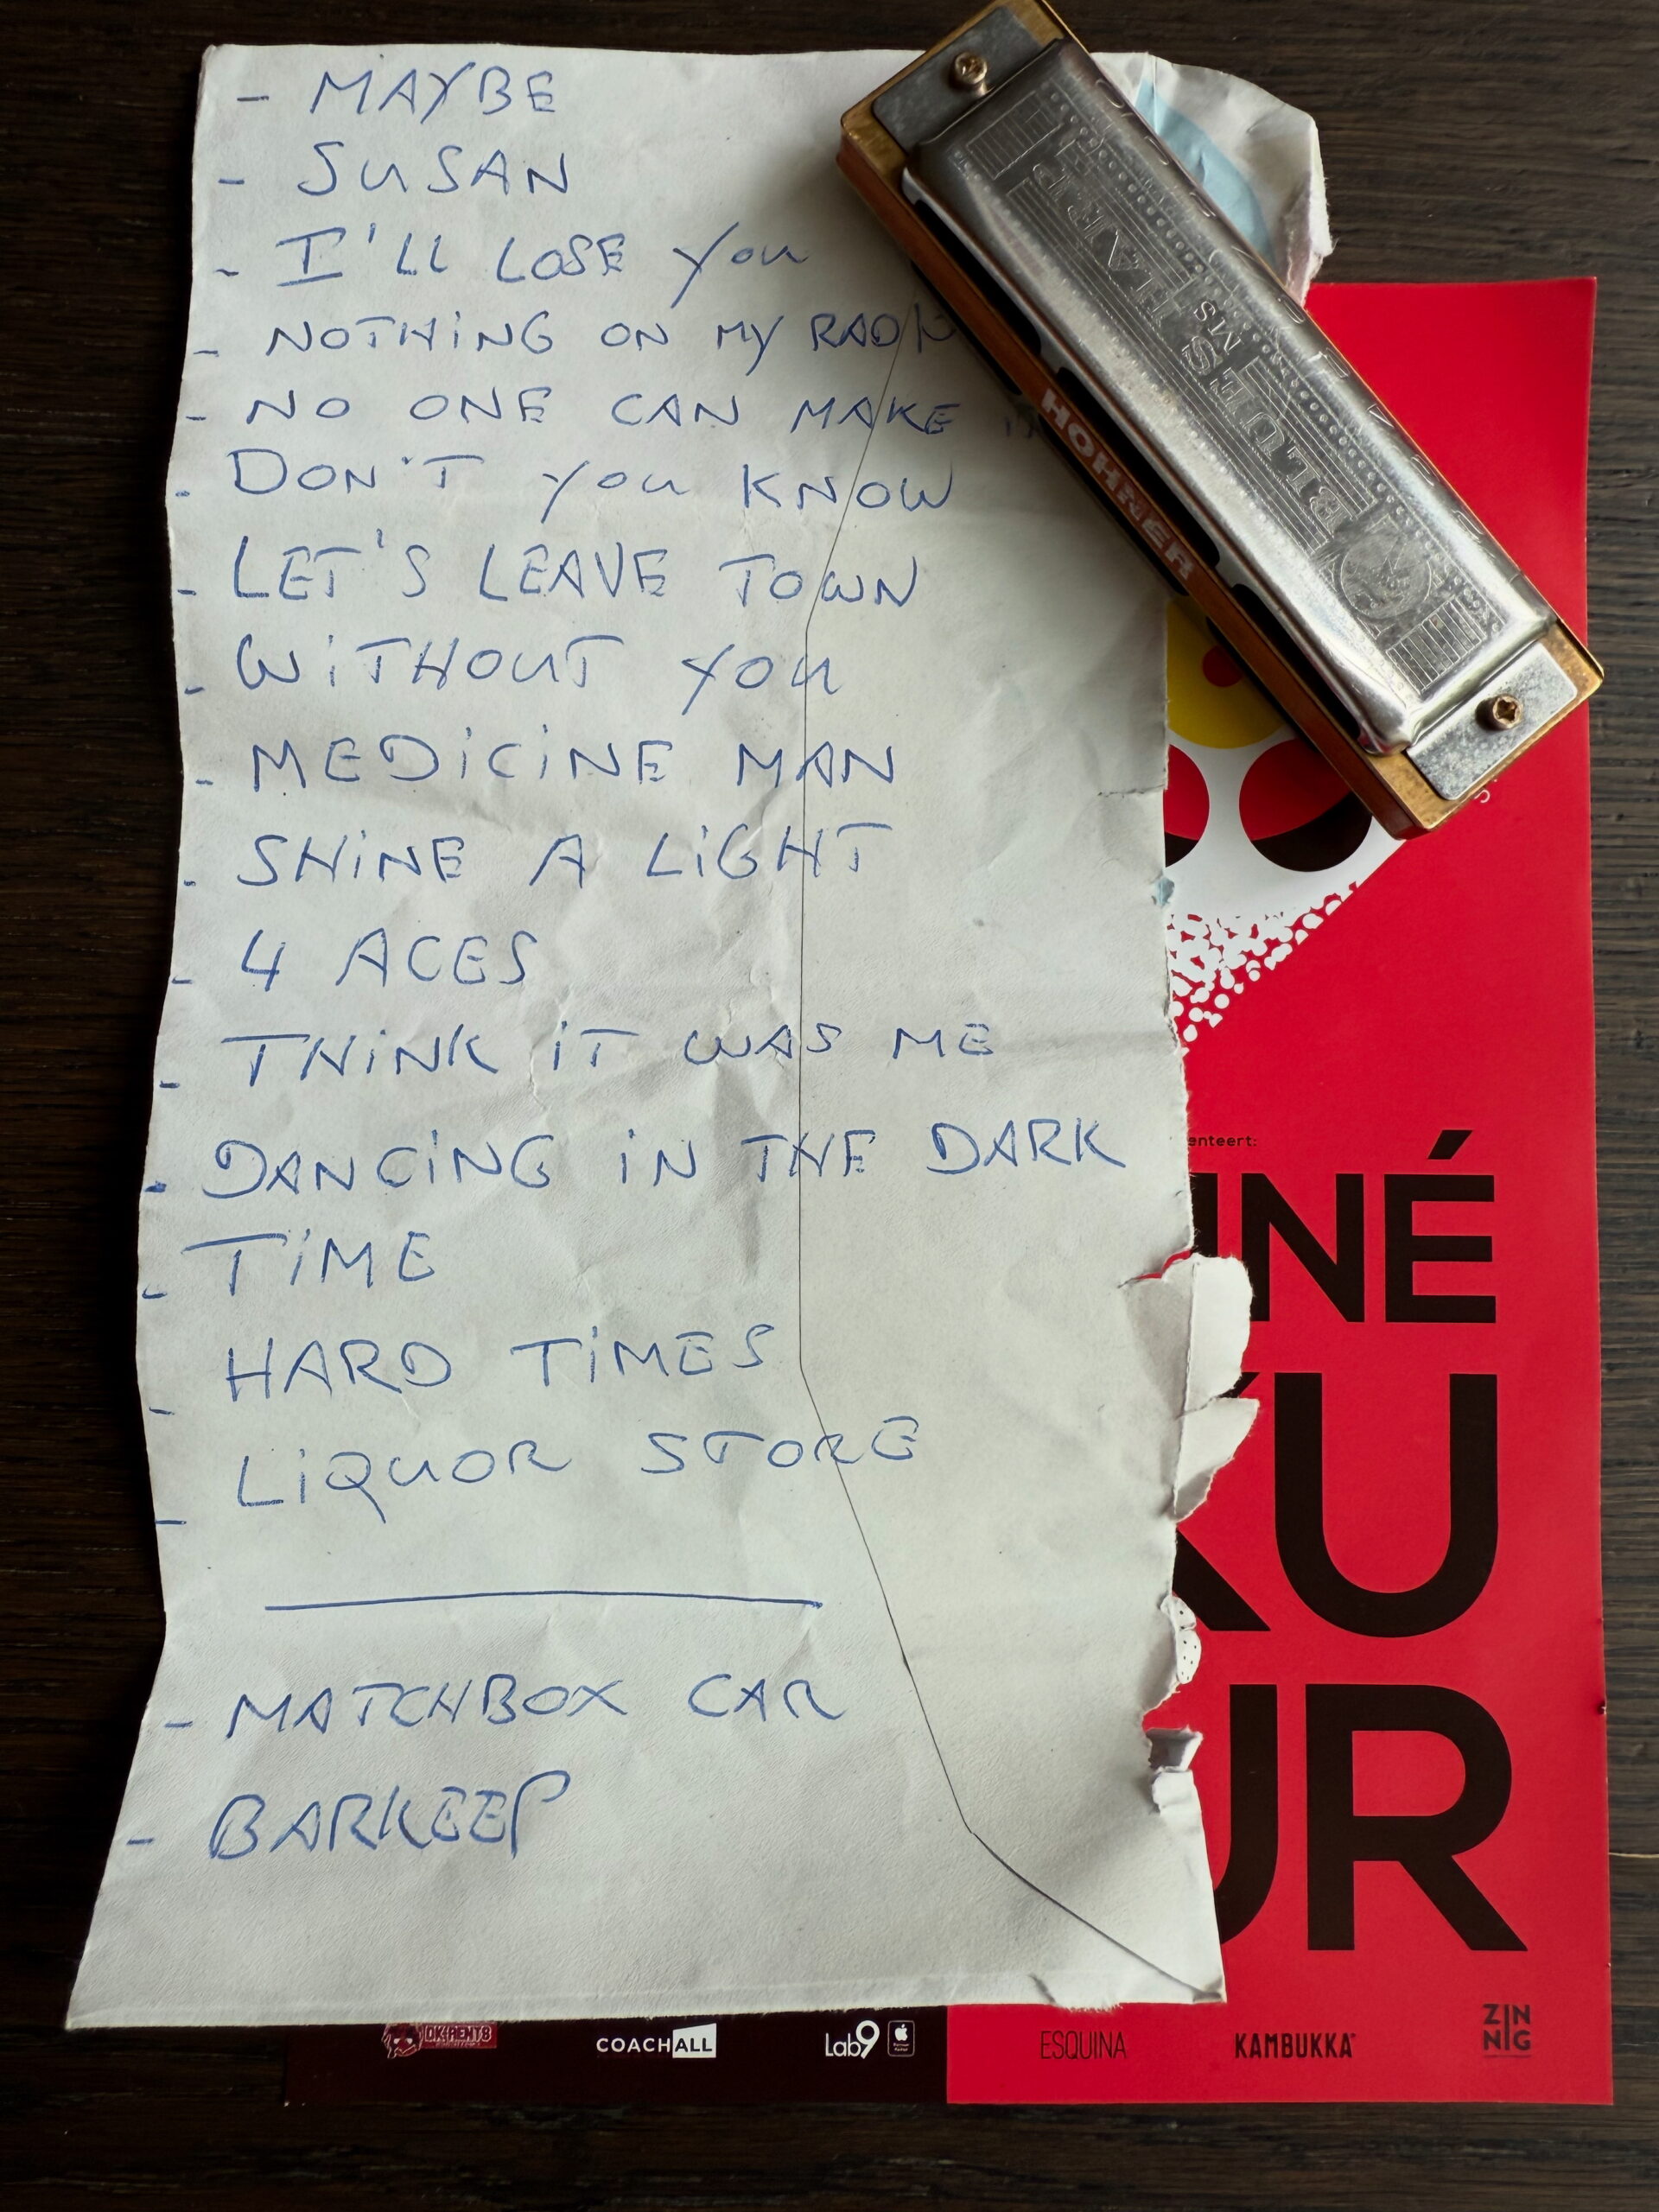 - MAYBE
- SUSAN
- I'LL LOSE You
- NOTHING ON MY RADIO
- NO ONE CAN MAKE
- DON'T you KNOW
- LET'S LEAVE TOWN
- WITHOUT YOU
- MEDICINE MAN
- SHINE A LIGHT
- 4 ACES
- THINK IT WAS ME
- DANCING IN THE DARK
- TIME
- HARD TIMES
- LIQUOR STORE
- MATCHBOX CAR
- BARKEEP
BLUES HARP
MS
HOHNER
enteert:
NÉ
U
UR
DK-RENT8
COACHALL
Lab9
ESQUINA
KAMBUKKA
ZINNIG